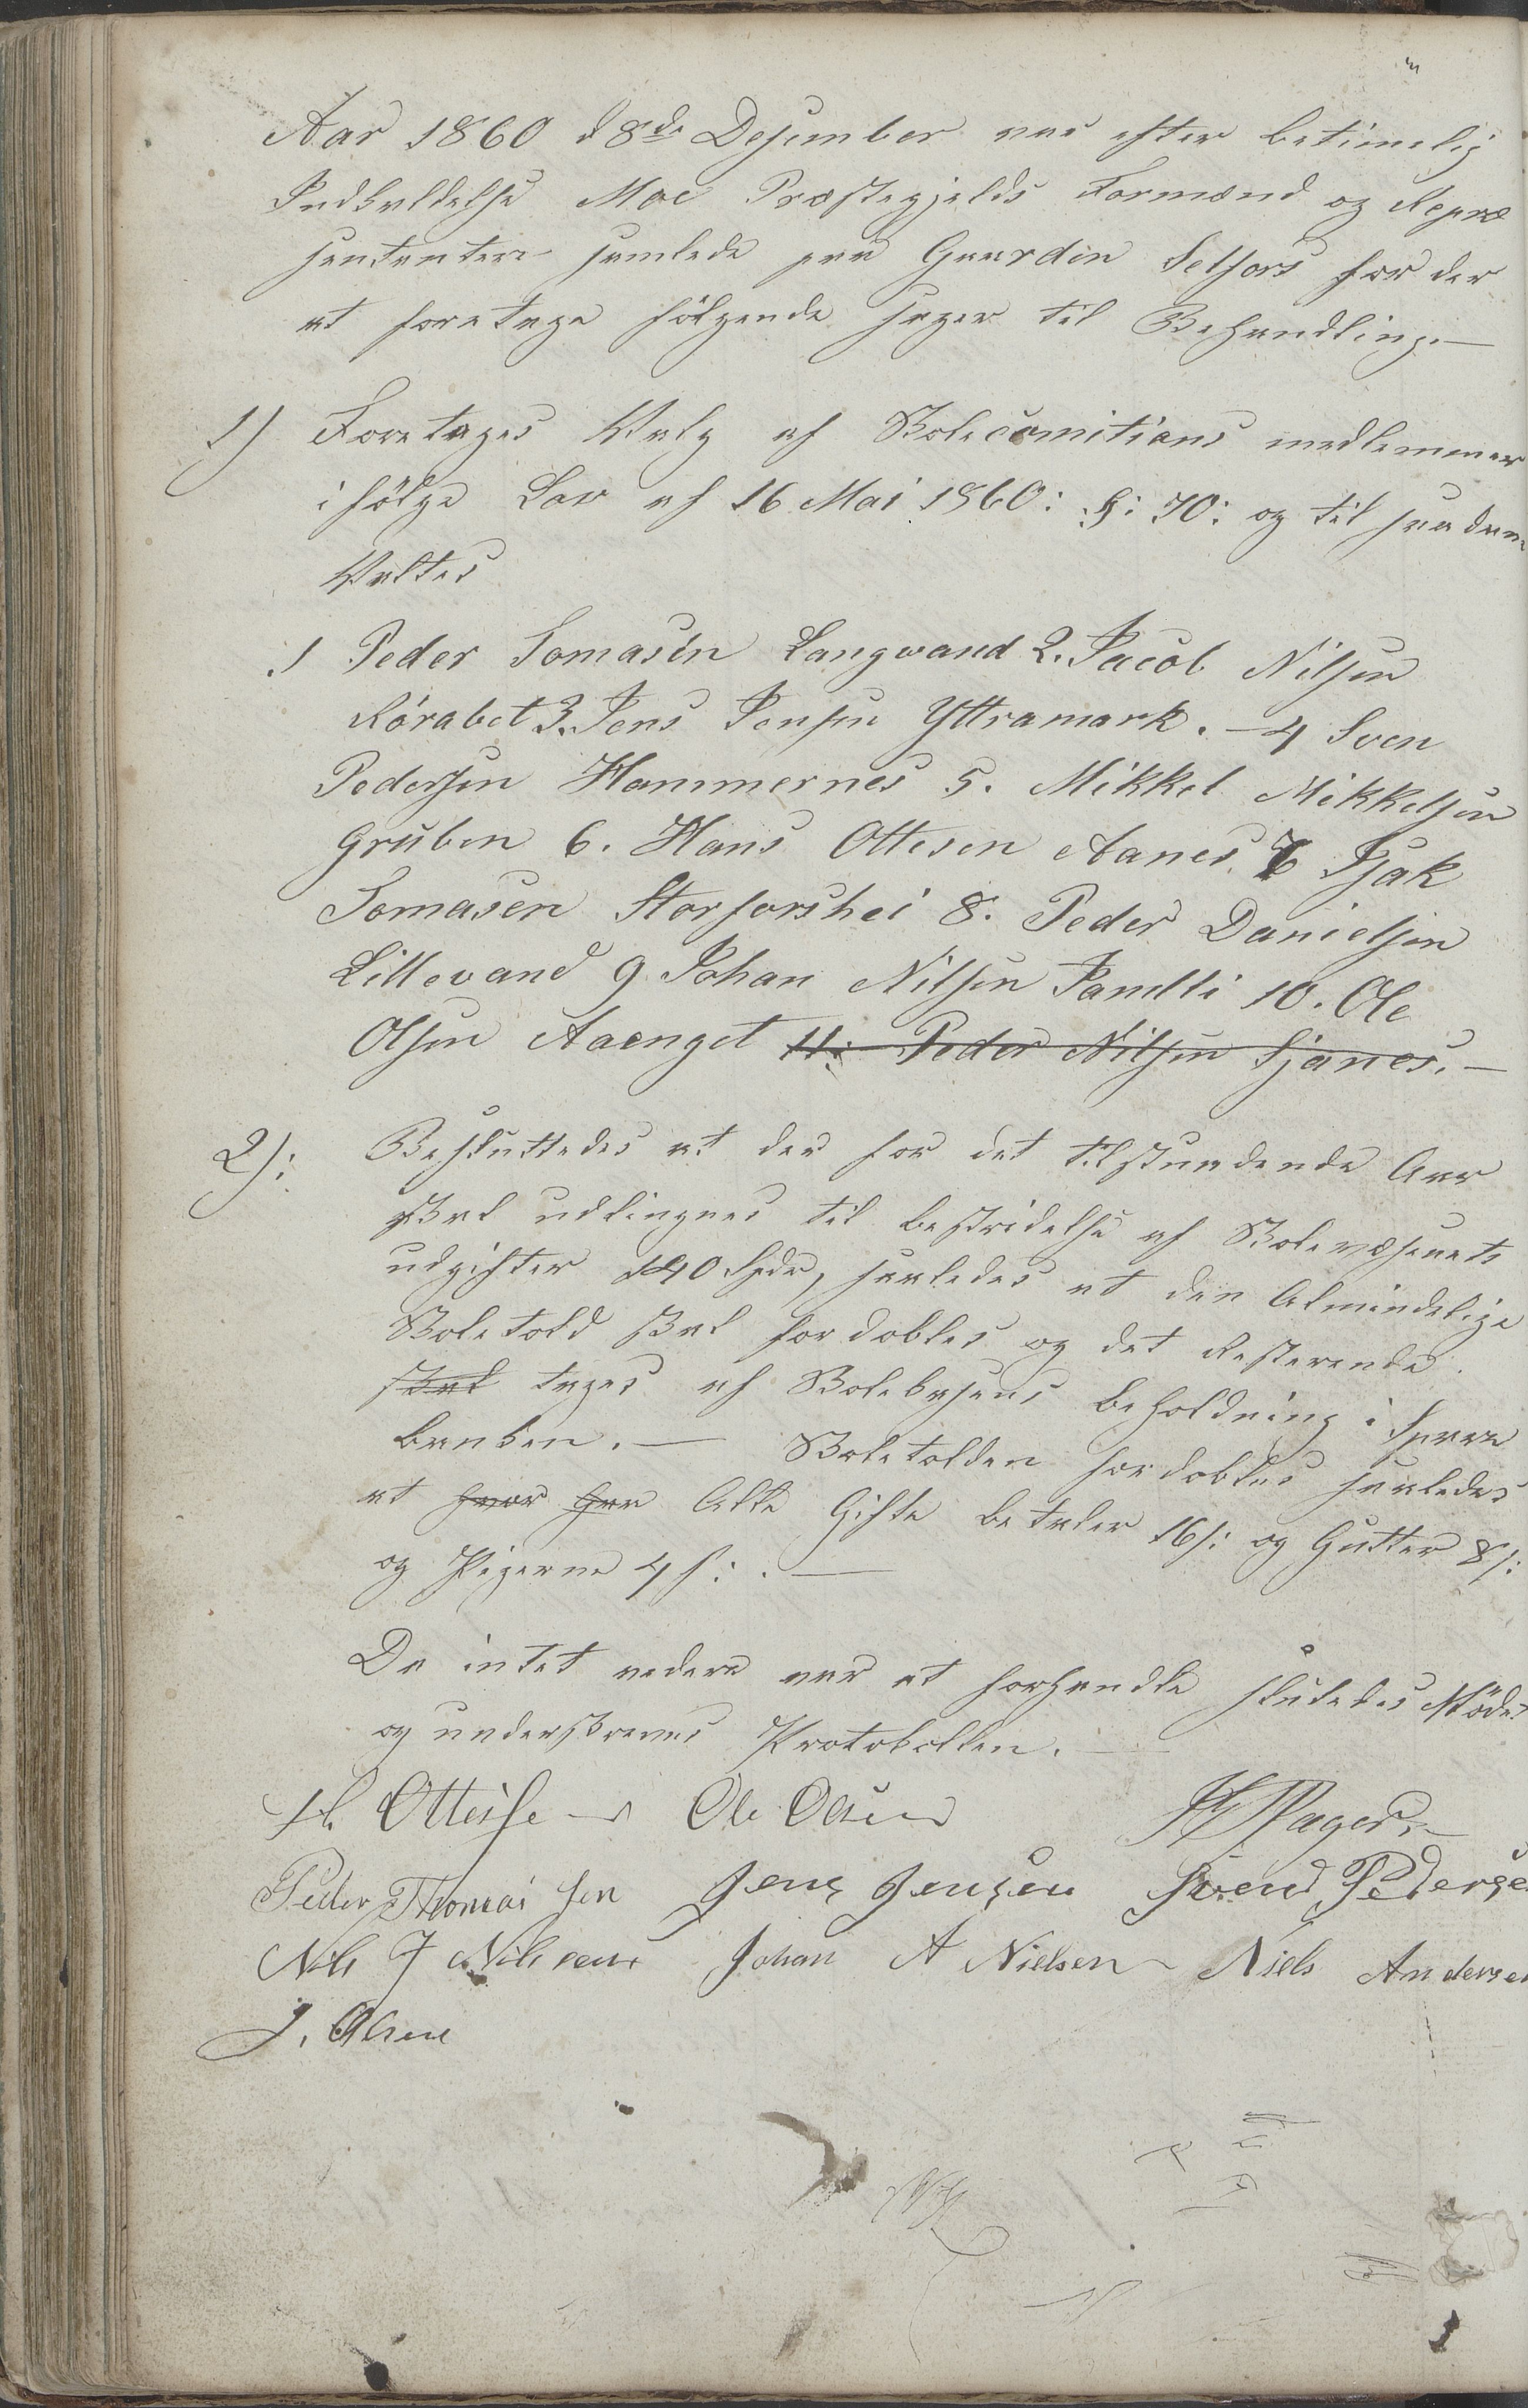 Aar 1860 d 8de Desember var efter betimelig
Indkaldelse Moe Præstegjelds Formænd og Repræ
sentanter samlede paa Gaarden Selfors for der
at foretage følgende sager til Behandling.—
1) Foretages Valg af Skolecomitiens medlemmer
ifølge Lov af 16 Mai 1860: §: 70: og til saadane
Valtes
.1 Peder Tomasen Langvand 2. Jacob Nilsen
Rørabet 3. Jens Jensen Yttramark. — 4 Sven
Pedersen Hammernes 5. Mikkel Mikkelsen
Gruben 6. Hans Ottesen Aanes 7 Isak
Tomasen Storforshei 8. Peder Danielsen
Lillevand 9 Johan Nilsen Jamtli 10. Ole
Olsen Aaenget 11: Peder Nilsen Sjanes. —
2): Besluttedes at der for det tilstundende Aar
skal udlingnes til bestridelse af Skolevæsenets
udgifter 140 Spdr, saaledes at den Almindelige
Skoletold skal fordobles og det Resterende
skal tages af Skolekasens beholdning i Spare
banken. — Skoletolden fordobles saaledes
at hver Alle Gifte betaler 16 s: og Gutter 8 s:
og Pigerne 4 s: . —
Da intet videre var at forhandle sluttedes Mødet
og underskreves Protokollen. —
H. Ottesen Ole Olsen
Peder Thomassen Jens Jensen Svend Pederse
Nils J Nilsen Johan A Nielsen Niels Andersen
J. Olsen